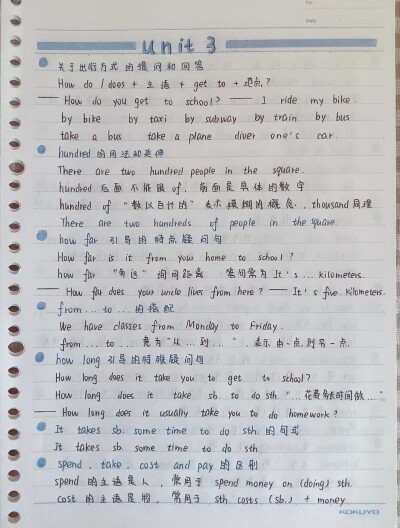 No.
Date
Unit 3
关于出行方式的提问和回答
How do / does + 主语 + get to + 地点?
—— How do you get to school? —— I ride my bike.
by bike by taxi by subway by train by bus
take a bus take a plane diver one's car.
hundred 的用法和条件
There are two hundred people in the square.
hundred 后面不能跟 of, 前面是具体的数字
hundred of "数以百计的" 表示模糊的概念., thousand 同理
There are two hundreds of people in the square.
how far 引导的特点疑问句
How far is it from you home to school?
how far "多远" 询问距离 答句常为 It's ... kilometers.
—— How far does your uncle lives from here? —— It's five kilometers.
from... to... 的搭配
We have classes from Monday to Friday.
from... to... 意为 "从...到...", 表示由一点到另一点.
how long 引导的特殊疑问句
How long does it take you to get to school?
How long does it take sb. to do sth "...花费多长时间做..."
—— How long does it usually take you to do homework?
It takes sb. some time to do sth 的句式
It takes sb. some time to do sth.
spend, take, cost and pay 的区别
spend 的主语是人, 常用于 spend money on (doing) sth.
cost 的主语是物, 常用于 sth costs (sb.) + money
KOKUYO